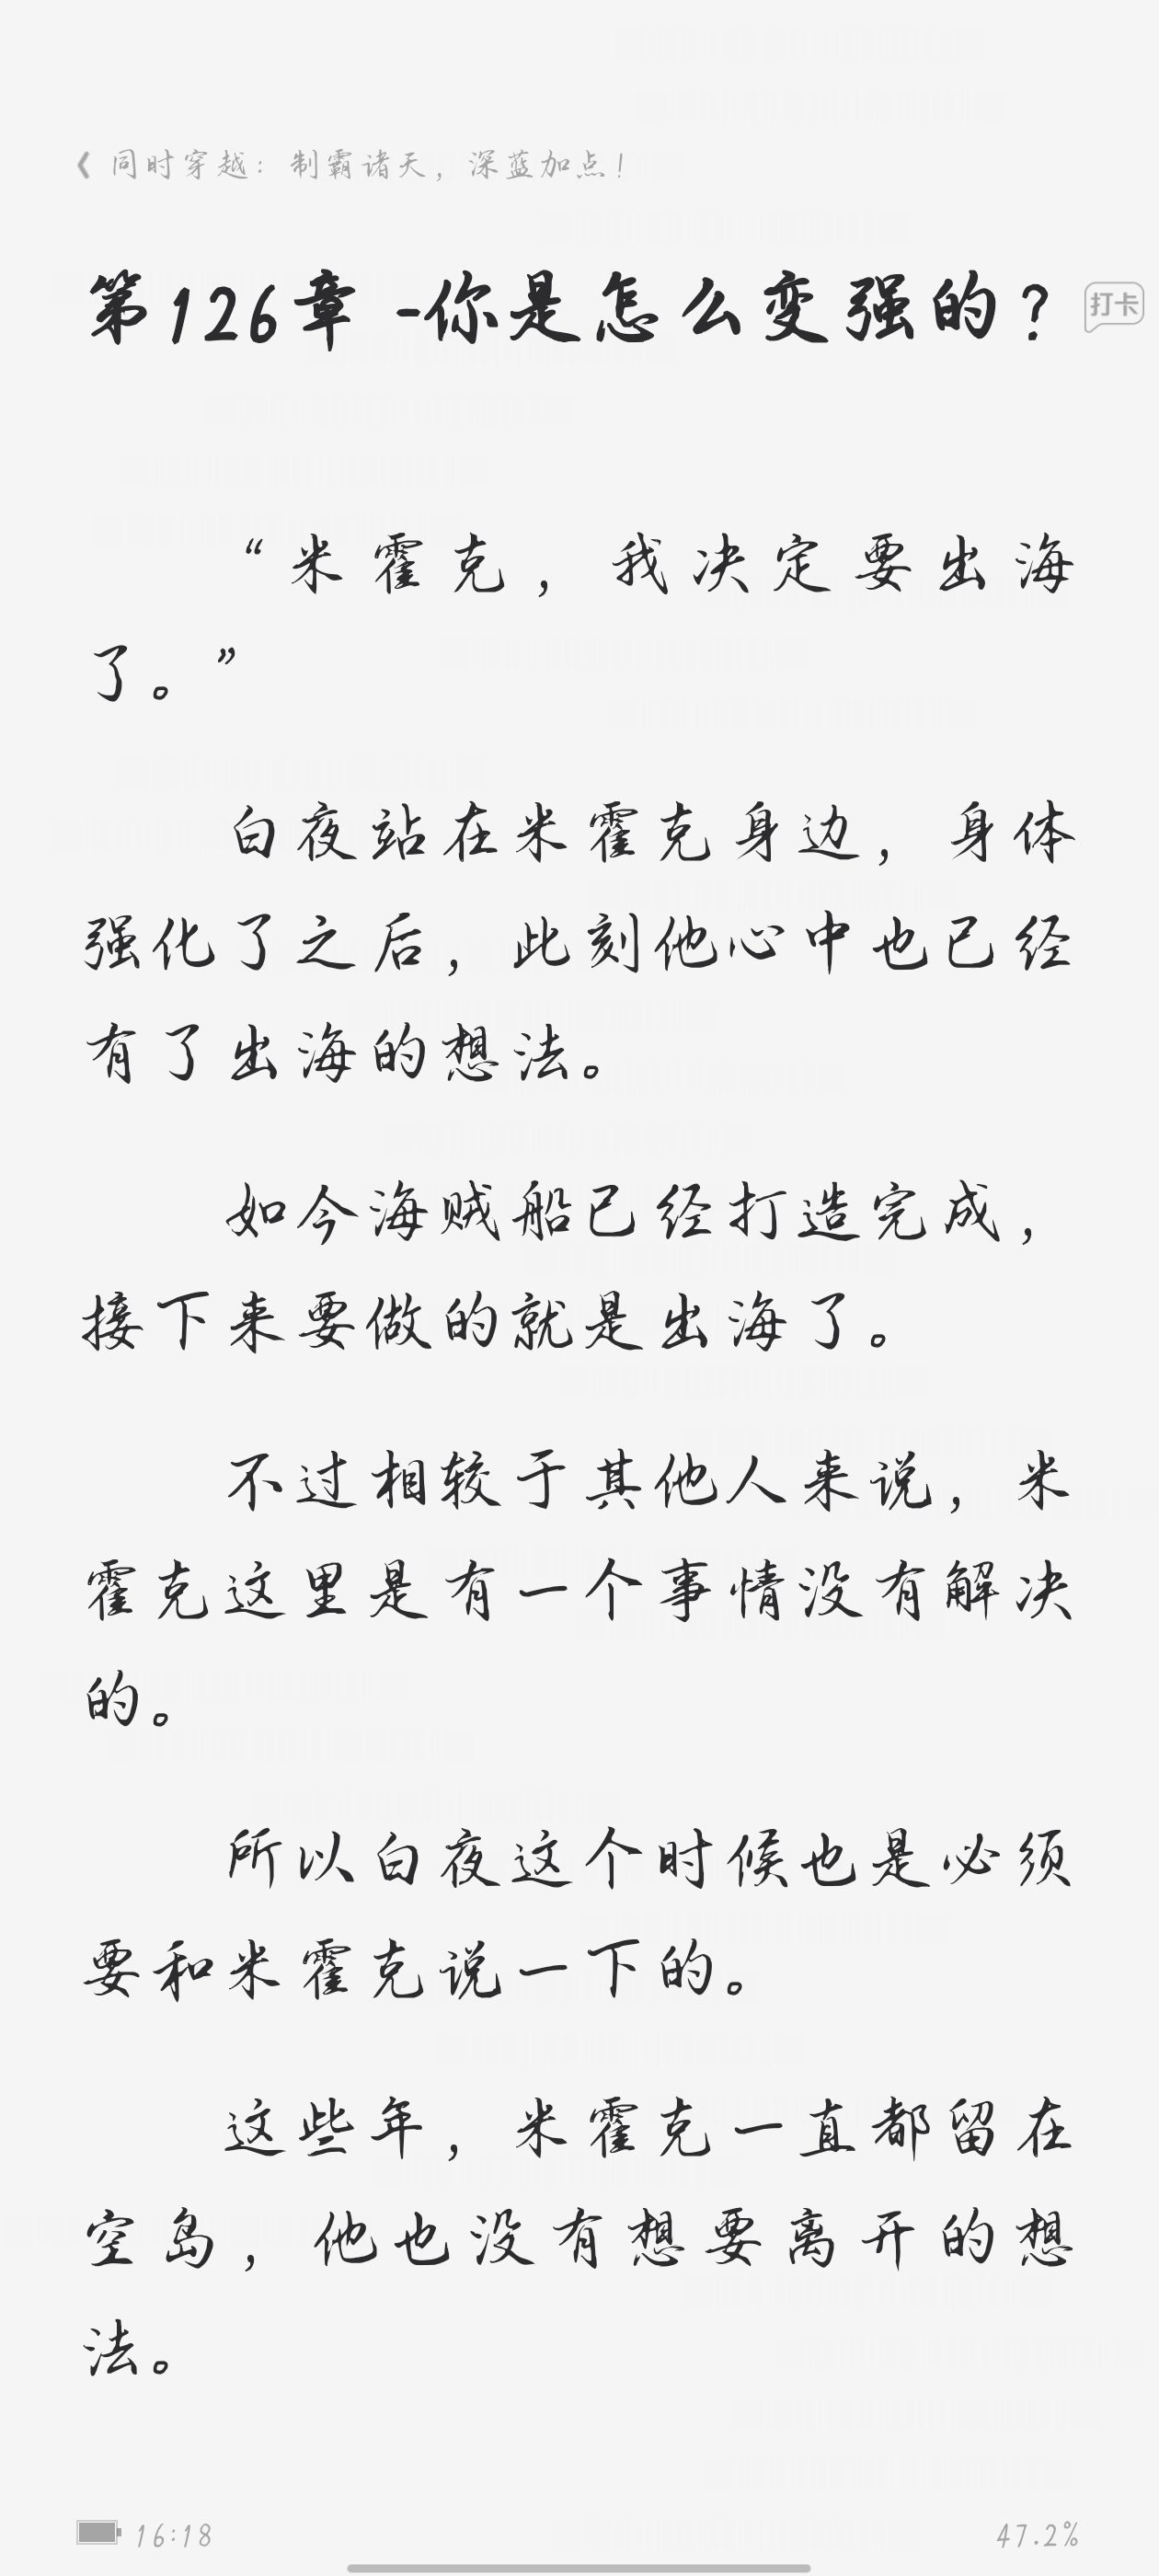 《 同时穿越：制霸诸天，深蓝加点！
第126章 -你是怎么变强的？
打卡
“米霍克，我决定要出海
了。”
白夜站在米霍克身边，身体
强化了之后，此刻他心中也已经
有了出海的想法。
如今海贼船已经打造完成，
接下来要做的就是出海了。
不过相较于其他人来说，米
霍克这里是有一个事情没有解决
的。
所以白夜这个时候也是必须
要和米霍克说一下的。
这些年，米霍克一直都留在
空岛，他也没有想要离开的想
法。
16:18
47.2%